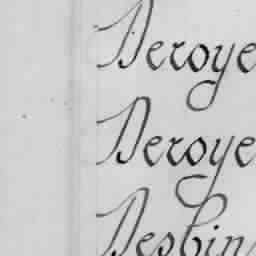 Deroye
Deroye
Desbin